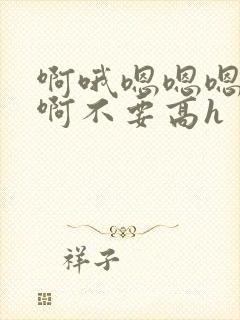 啊哦嗯嗯嗯
啊不要高h
祥子